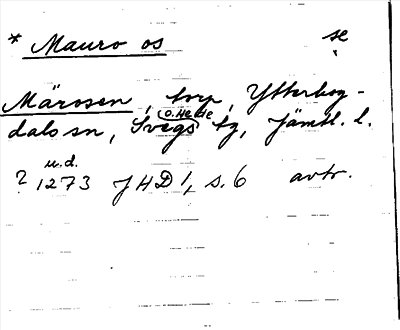 * Mauro os se
Märosen, torp, Ytterhog-
dals sn, Svegs o. Hede tg, Jämtl. l.
u.d.
? 1273 JHD 1, s. 6 avtr.